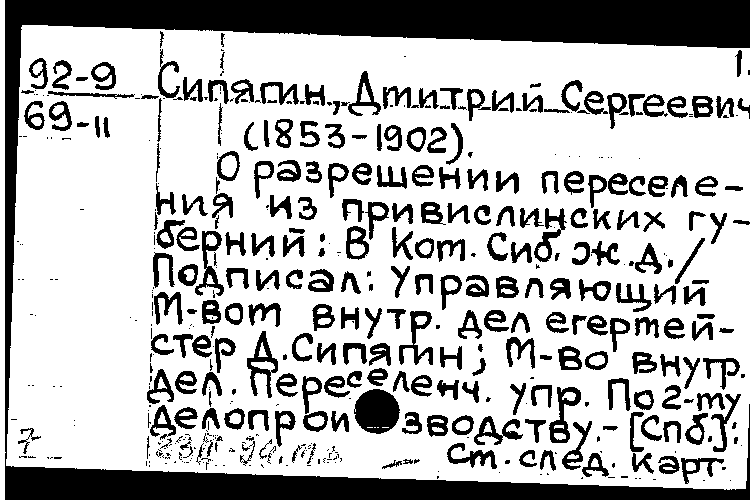 1.
92-9 Сипягин, Дмитрий Сергеевич
69-11 (1853-1902).
О разрешении переселе-
ния из привислинских гу-
берний: В Ком. Сиб. ж.д. /
Подписал: Управляющий
М-вом внутр. дел егермей-
стер Д. Сипягин; М-во внутр.
дел. Переселенч. упр. По 2-му
делопроизводству.- [Спб.]:
7 См. след. карт.